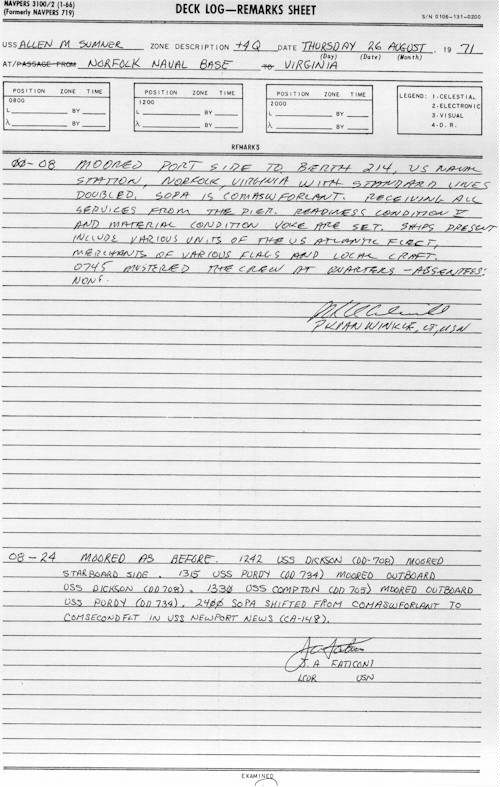 NAVPERS 3100/2 (1-66)
(Formerly NAVPERS 719)
DECK LOG—REMARKS SHEET
S/N 0106-131-0200
USS ALLEN M SUMNER ZONE DESCRIPTION +4Q DATE THURSDAY 26 AUGUST, 19 71
(Day) (Date) (Month)
AT/PASSAGE FROM NORFOLK NAVAL BASE TO VIRGINIA
POSITION ZONE TIME
0800
L BY
λ BY
POSITION ZONE TIME
1200
L BY
λ BY
POSITION ZONE TIME
2000
L BY
λ BY
LEGEND: 1-CELESTIAL
2-ELECTRONIC
3-VISUAL
4-D.R.
REMARKS
00-08 MOORED PORT SIDE TO BERTH 214, US NAVAL
STATION, NORFOLK, VIRGINIA WITH STANDARD LINES
DOUBLED. SOPA IS COMASWFORLANT. RECEIVING ALL
SERVICES FROM THE PIER. READINESS CONDITION V
AND MATERIAL CONDITION YOKE ARE SET. SHIPS PRESENT
INCLUDE VARIOUS UNITS OF THE US ATLANTIC FLEET,
MERCHANTS OF VARIOUS FLAGS AND LOCAL CRAFT.
0745 MUSTERED THE CREW AT QUARTERS - ABSENTEES:
NONE.
VAN WINKLE, LT, USN
08-24 MOORED AS BEFORE. 1242 USS DICKSON (DD-708) MOORED
STARBOARD SIDE. 1315 USS PURDY (DD 734) MOORED OUTBOARD
USS DICKSON (DD 708). 1330 USS COMPTON (DD 705) MOORED OUTBOARD
USS PURDY (DD 734). 2400 SOPA SHIFTED FROM COMASWFORLANT TO
COMSECONDFLT IN USS NEWPORT NEWS (CA-148).
J. A FATICONI
LCDR USN
EXAMINED